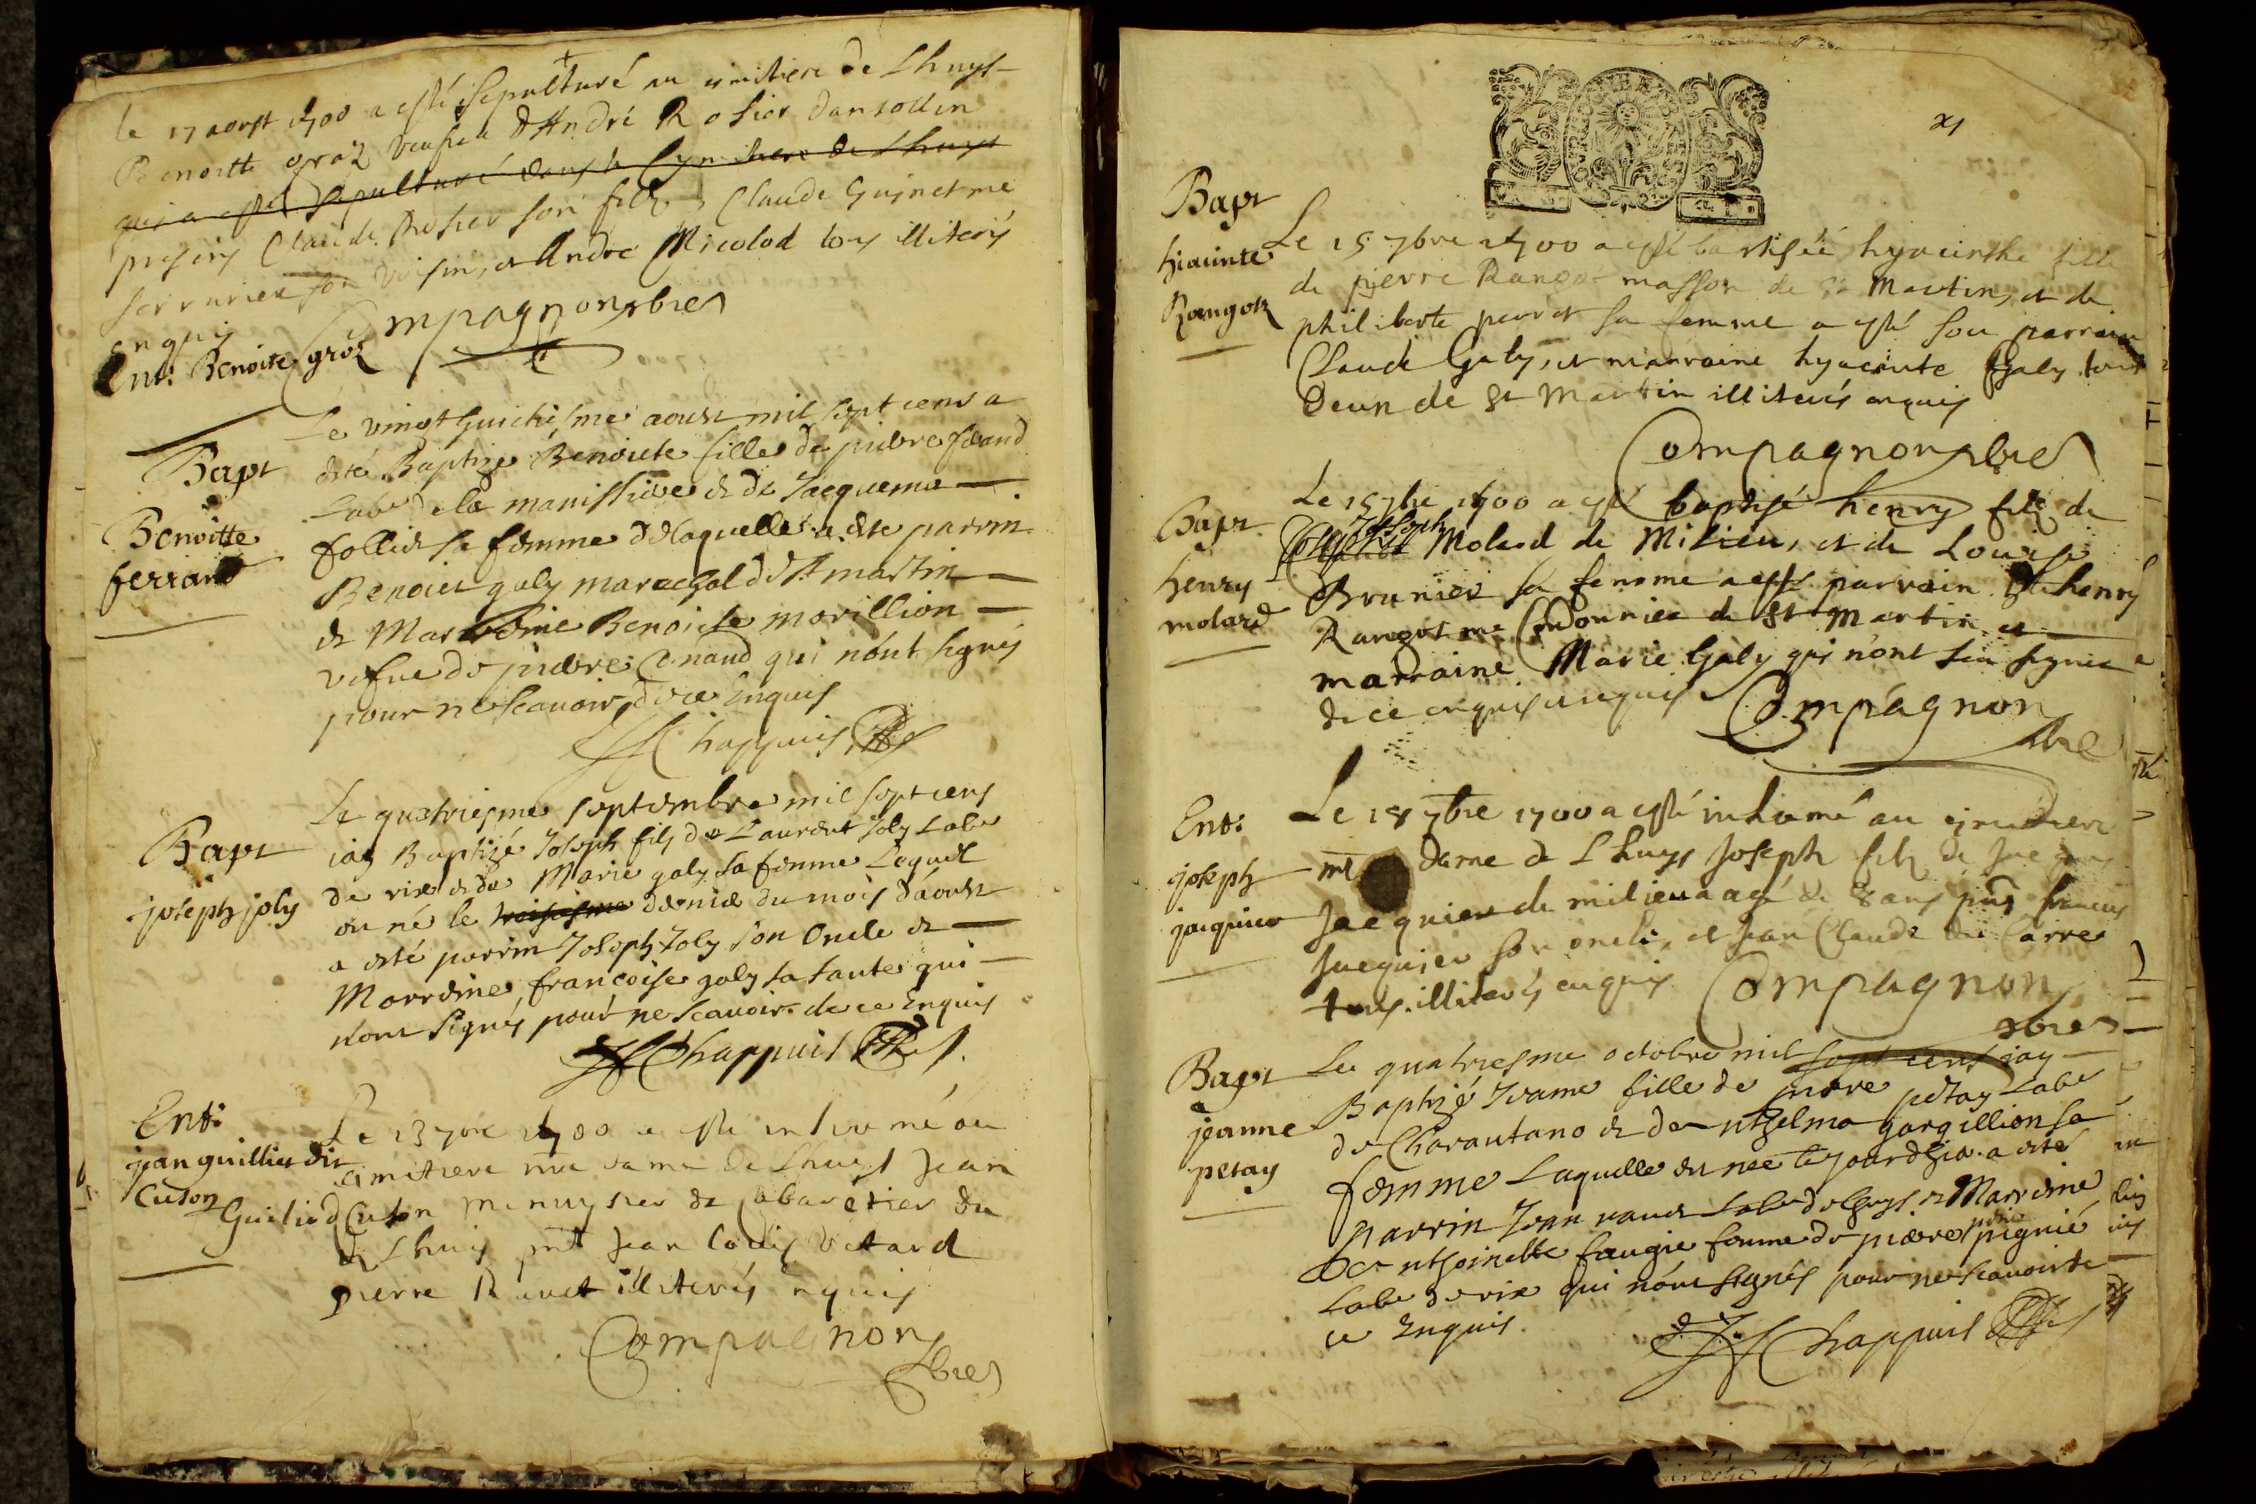 le 17 aoust 1700 a esté sepulturé au cimitiere de Lhuys
Benoitte graz veufve d'André Rosier dansollin
qui a esté sepulturé dans le Cymitiere de Lhuys
presens Claude Rosier son filz, Claude Guinet me
serrurier son voisin, et André Micolod tous illiterés
enquis Compagnon pbre
Ent: Benoite groz
Bapt
Benoitte
ferrand
Le vingt huictiesme aoust mil sept cens a
esté Baptizé Benoiste fille de pierre ferand
Labr de la et de Jacquema
follier sa femme de laquelle a esté parrin
Benoict galy marechal de St martin
et Marreine Benoiste morillion
vefue de pierre qui nónt signés
pour ne scauoir de ce Enquis
Chappuis
Bapt
joseph joly
Le quatriesme septembre mil sept cens
iay Baptizé Joseph fils de Laurent Joly Labr
de rix et de Marie galy sa femme Lequel
est né le troisiesme dernier du mois d'áoust
a esté parrin Joseph Joly son Oncle et
Marreine francoise galy sa tante qui
nont signés pour ne scauoir de ce Enquis
Chappuis
Ent:
jean guillier dit
Cuson
Le 13 7bre 1700 a esté inhumé au
cimitiere nre dame de Lhuys Jean
Guilier d Cuson menuysier et cabaretier du
d Lhuis pnt Jean Louis
pierre Ravet illiterés enquis
Compagnon
pbre
Bapt
hiacinte
Rangot
Le 15 7bre 1700 a esté baptisée hyacinthe fille
de pierre Rangot masson de St Martin, et de
philiberte perret sa femme a esté son parrain
Claude Galy, et marraine hyacinte Galy tous
Deux de St Martin illiterés enquis
Compagnon pbre
Bapt
henry
molard
Le 15 7bre 1700 a esté baptisé henry filz de
Josseph Molard de Milieu, et de Louise
Brunier sa femme a esté parrain henry
Rangot me Cordonnier de St Martin et
marraine Marie Galy qui n'ont signer
de ce enquis
Compagnon
pbre
Ent:
joseph
jacquier
Le 18 7bre 1700 a esté inhumé au cimitiere
nre dame de Lhuys Joseph filz de Jacques
Jacquier de milieu agé de 8 ans pnt francois
Jacquier son oncle, et Jean Claude du Carre
tous illiterés enquis Compagnon
pbre
Bapt
jeanne
petay
Le quatriesme octobre mil sept cens iay
Baptizé Jeanne fille de pierre petay Labr
de Charantano et de anthelma gargillion sa
femme Laquelle est nee le jourdhier a esté
parrin Jean ravet Labr de Lhuys et Marreine
anthoinette faugie femme de pierre pignié
Labr de rix qui nónt signés pour ne scauoir de
ce Enquis
Chappuis